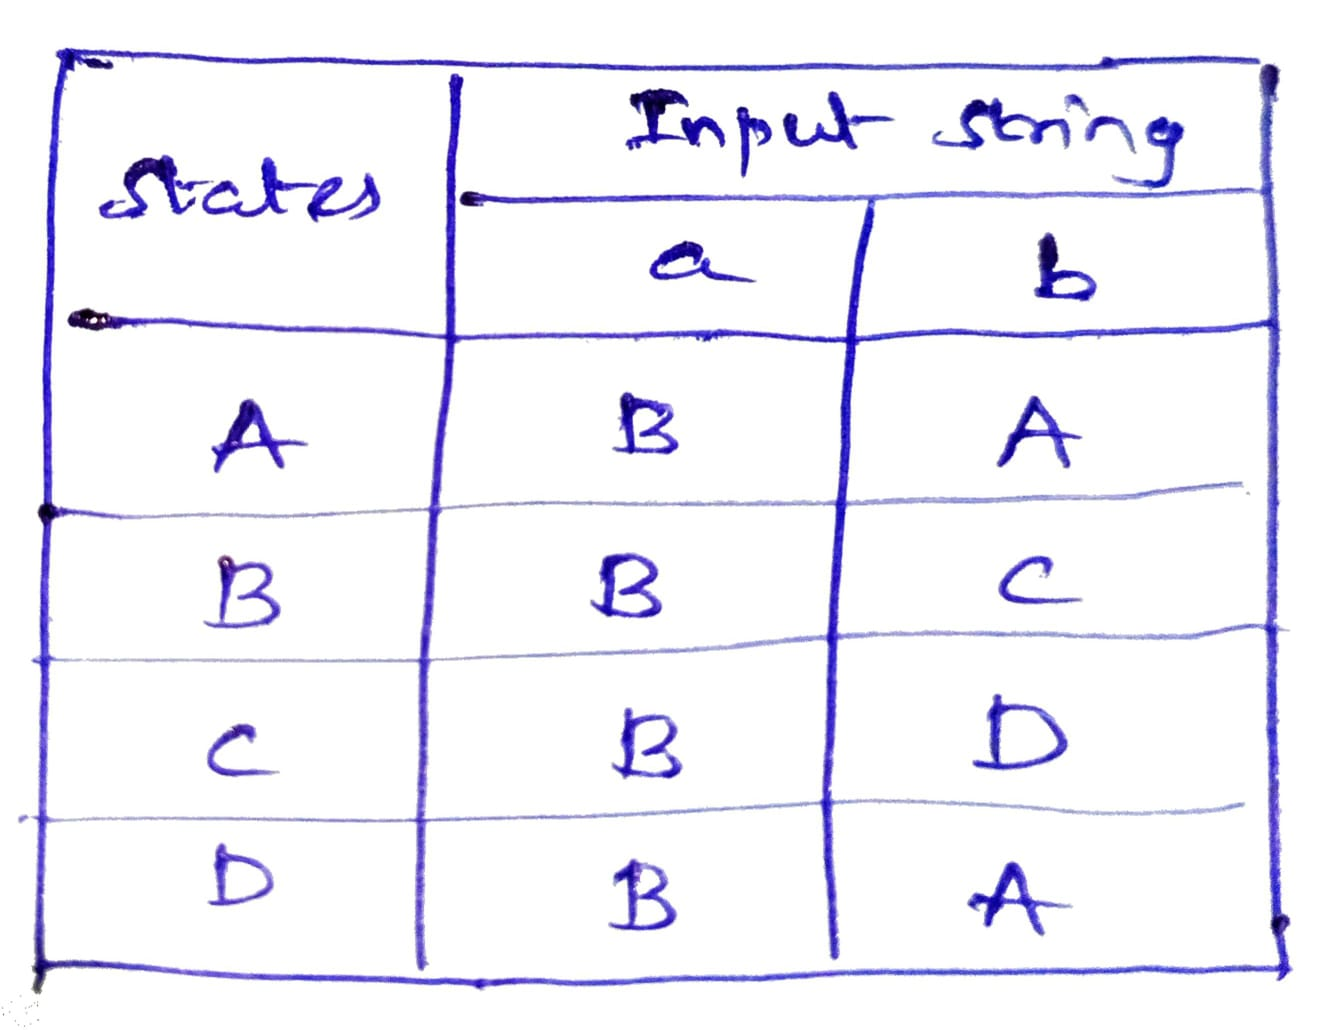 States Input string
a b
A B A
B B C
C B D
D B A